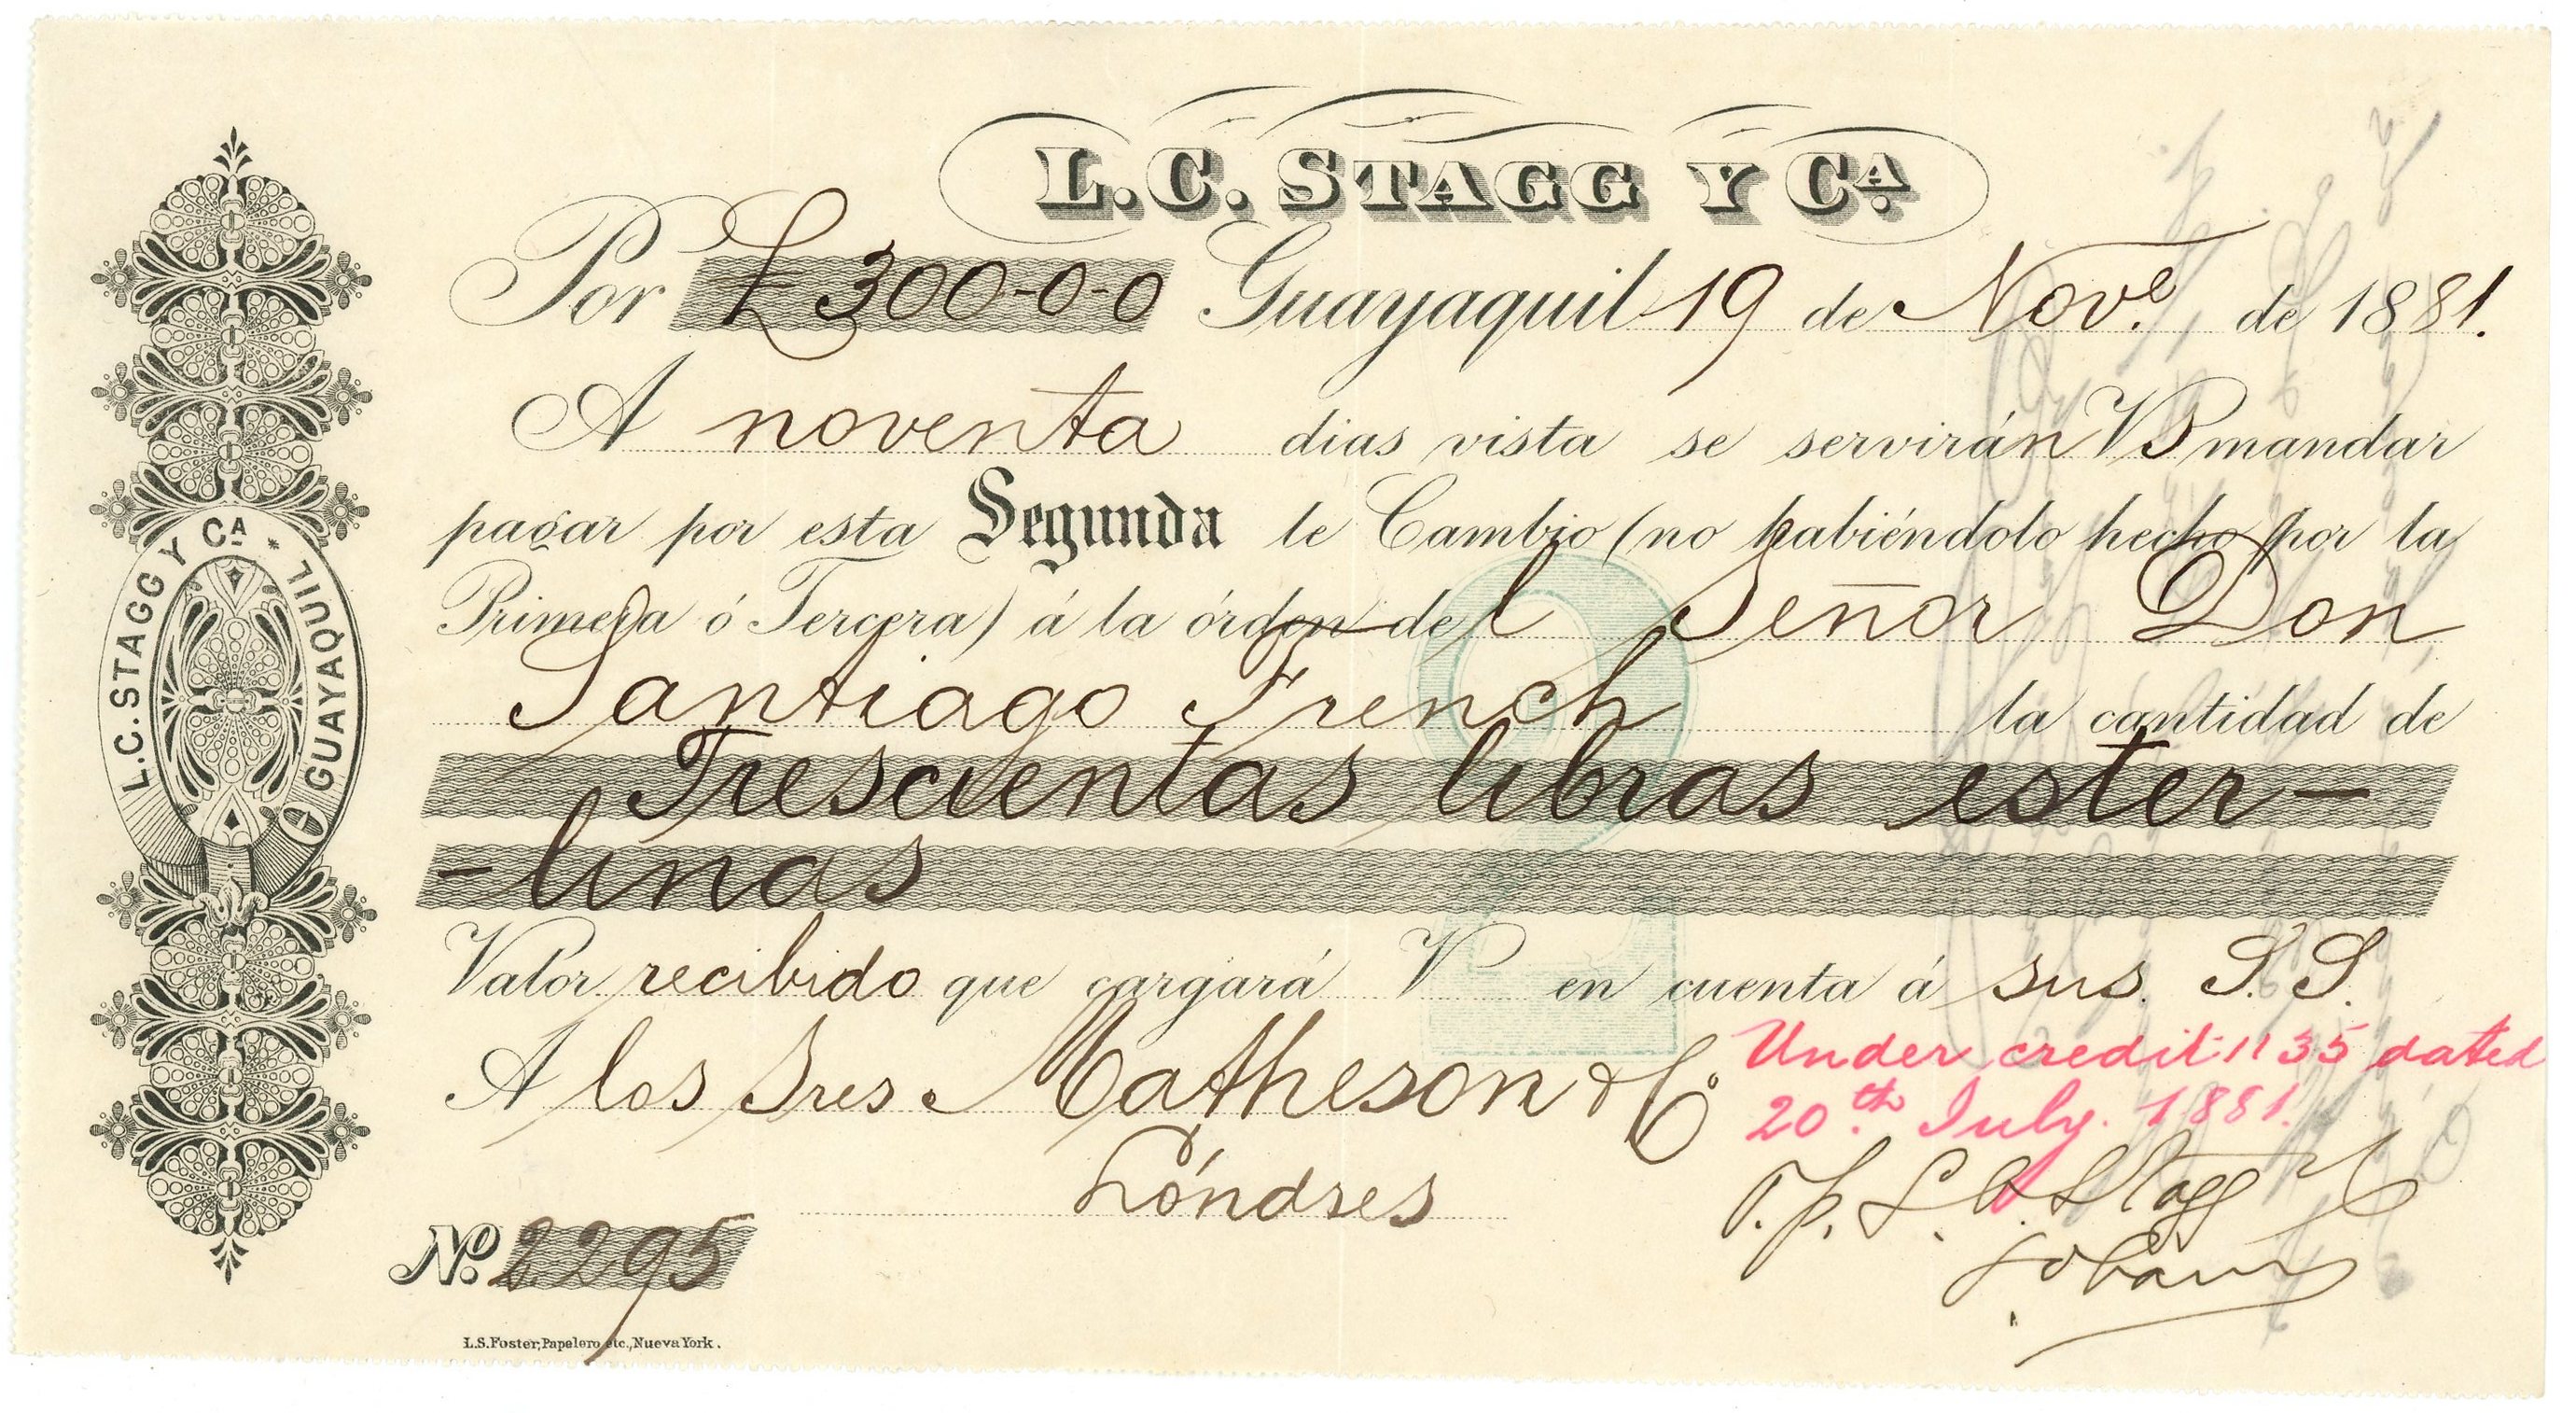 L.C. STAGG Y CA.
Por £300-0-0 Guayaquil 19 de Nove. de 1881.
A noventa dias vista se servirán VS mandar
pagar por esta Segunda de Cambio (no habiéndolo hecho por la
Primera ó Tercera) á la órden del Señor Don
Santiago French la cantidad de
Trescientas libras ester-
-linas
Valor recibido que cargará V en cuenta á sus. S. S.
A los Sres Matheson & Co
Under credit 1135 dated
20th July. 1881.
Lóndres
P.p. L. C. Stagg y C
No. 2295
L.S. Foster, Papelero etc., Nueva York.
L.C. STAGG Y CA * GUAYAQUIL
2